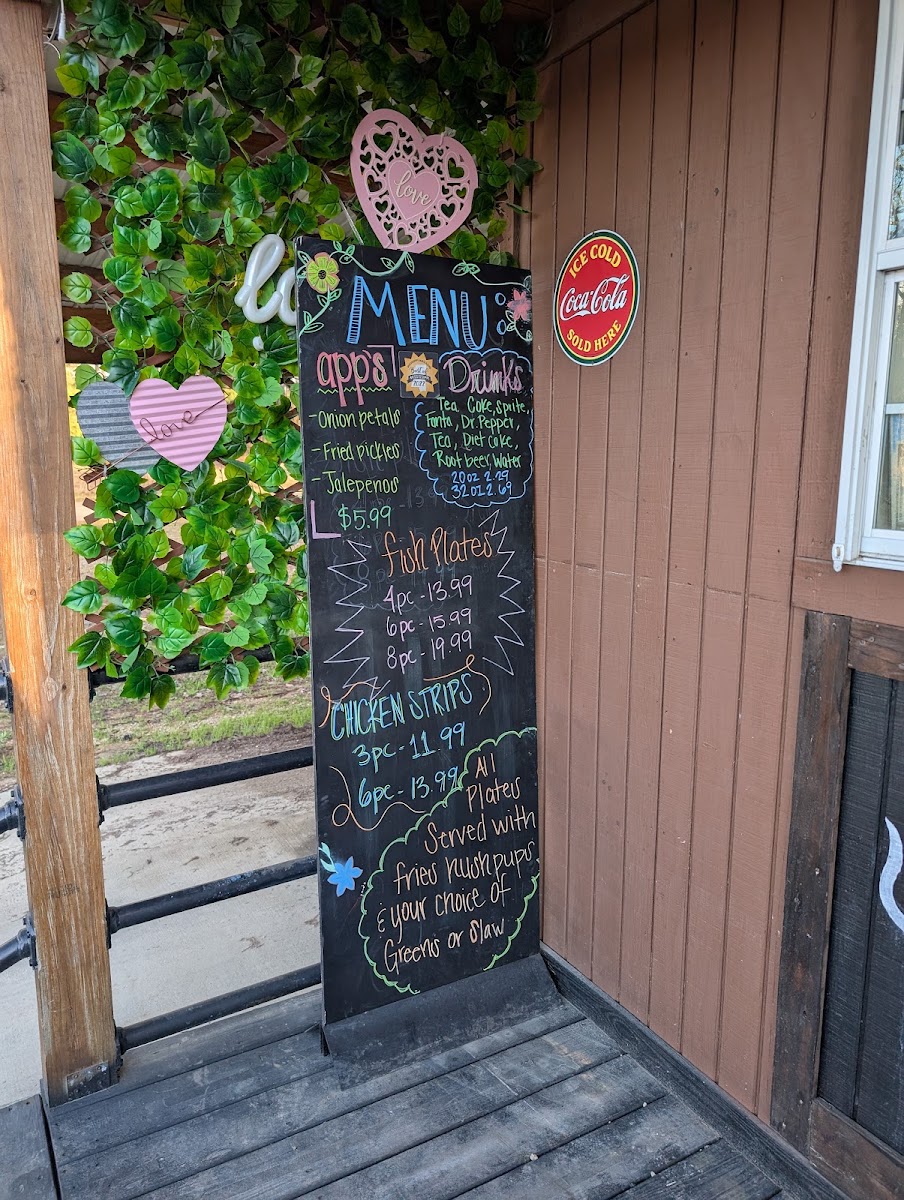 love
lo
love
ICE COLD
Coca-Cola
SOLD HERE
MENU:
app's
-Onion petals
-Fried pickles
-Jalepenos
$5.99
Drinks
Tea, Coke, sprite,
Fanta, Dr. Pepper,
Tea, Diet Coke,
Root beer, Water
20oz 2.29
32oz 2.69
fish Plates
4pc - 13.99
6pc - 15.99
8pc - 19.99
CHICKEN STRIPS
3pc - 11.99
6pc - 13.99
All
Plates
Served with
fries hushpups
& your choice of
Greens or Slaw